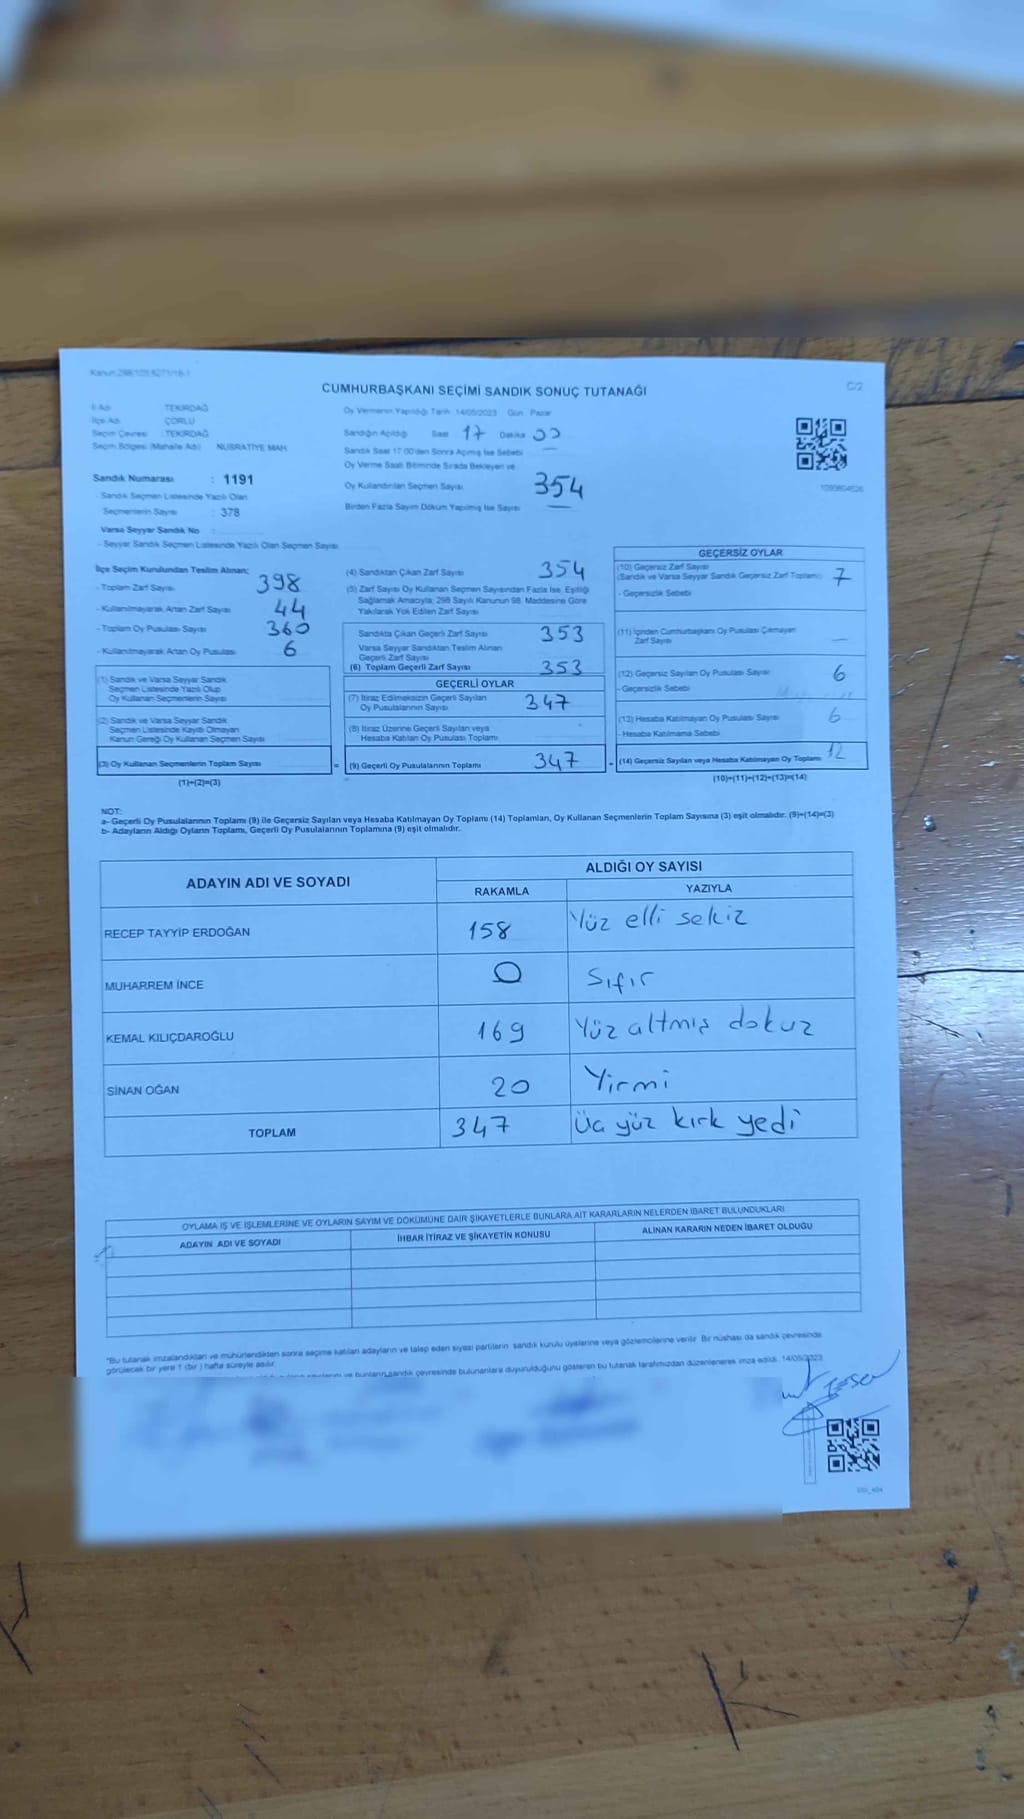 C/2
CUMHURBAŞKANI SEÇİMİ SANDIK SONUÇ TUTANAĞI
İl Adı TEKİRDAĞ
İlçe Adı ÇORLU
Seçim Çevresi : TEKİRDAĞ
Seçim Bölgesi (Mahalle Adı) NUSRATİYE MAH
Sandık Numarası : 1191
- Sandık Seçmen Listesinde Yazılı Olan
Seçmenlerin Sayısı : 378
Varsa Seyyar Sandık No :
- Seyyar Sandık Seçmen Listesinde Yazılı Olan Seçmen Sayısı
Oy Vermenin Yapıldığı Tarih 14/05/2023 Gün Pazar
Sandığın Açıldığı Saat 17 Dakika
Sandık Saat 17:00'den Sonra Açılmış İse Sebebi
Oy Verme Saati Bitiminde Sırada Bekleyen ve
Oy Kullandırılan Seçmen Sayısı 354
Birden Fazla Sayım Döküm Yapılmış İse Sayısı —
İlçe Seçim Kurulundan Teslim Alınan;
- Toplam Zarf Sayısı 398
- Kullanılmayarak Artan Zarf Sayısı 44
- Toplam Oy Pusulası Sayısı 360
- Kullanılmayarak Artan Oy Pusulası 6
(1) Sandık ve Varsa Seyyar Sandık
Seçmen Listesinde Yazılı Olup
Oy Kullanan Seçmen Sayısı
(2) Sandık ve Varsa Seyyar Sandık
Seçmen Listesinde Kayıtlı Olmayan
Kanun Gereği Oy Kullanan Seçmen Sayısı
(3) Oy Kullanan Seçmenlerin Toplam Sayısı
(1)+(2)=(3)
(4) Sandıktan Çıkan Zarf Sayısı 354
(5) Zarf Sayısı Oy Kullanan Seçmen Sayısından Fazla İse, Eşitliği
Sağlamak Amacıyla, 298 Sayılı Kanunun 98. Maddesine Göre
Yakılarak Yok Edilen Zarf Sayısı
Sandıkta Çıkan Geçerli Zarf Sayısı 353
Varsa Seyyar Sandıktan Teslim Alınan
Geçerli Zarf Sayısı
(6) Toplam Geçerli Zarf Sayısı 353
GEÇERLİ OYLAR
(7) İtiraz Edilmeksizin Geçerli Sayılan
Oy Pusulalarının Sayısı 347
(8) İtiraz Üzerine Geçerli Sayılan veya
Hesaba Katılan Oy Pusulası Toplamı
= (9) Geçerli Oy Pusulalarının Toplamı 347
GEÇERSİZ OYLAR
(10) Geçersiz Zarf Sayısı
(Sandık ve Varsa Seyyar Sandık Geçersiz Zarf Toplamı) 7
- Geçersizlik Sebebi
(11) İçinden Cumhurbaşkanı Oy Pusulası Çıkmayan
Zarf Sayısı —
(12) Geçersiz Sayılan Oy Pusulası Sayısı 6
- Geçersizlik Sebebi
(13) Hesaba Katılmayan Oy Pusulası Sayısı 6
- Hesaba Katılmama Sebebi
(14) Geçersiz Sayılan veya Hesaba Katılmayan Oy Toplamı 12
(10)+(11)+(12)+(13)=(14)
NOT:
a- Geçerli Oy Pusulalarının Toplamı (9) ile Geçersiz Sayılan veya Hesaba Katılmayan Oy Toplamı (14) Toplamları, Oy Kullanan Seçmenlerin Toplam Sayısına (3) eşit olmalıdır. (9)+(14)=(3)
b- Adayların Aldığı Oyların Toplamı, Geçerli Oy Pusulalarının Toplamına (9) eşit olmalıdır.
ADAYIN ADI VE SOYADI ALDIĞI OY SAYISI
RAKAMLA YAZIYLA
RECEP TAYYİP ERDOĞAN 158 Yüz elli sekiz
MUHARREM İNCE 0 Sıfır
KEMAL KILIÇDAROĞLU 169 Yüz altmış dokuz
SİNAN OĞAN 20 Yirmi
TOPLAM 347 Üç yüz kırk yedi
OYLAMA İŞ VE İŞLEMLERİNE VE OYLARIN SAYIM VE DÖKÜMÜNE DAİR ŞİKAYETLERLE BUNLARA AİT KARARLARIN NELERDEN İBARET BULUNDUKLARI
ADAYIN ADI VE SOYADI İHBAR İTİRAZ VE ŞİKAYETİN KONUSU ALINAN KARARIN NEDEN İBARET OLDUĞU
*Bu tutanak imzalandıktan ve mühürlendikten sonra seçime katılan adayların ve talep eden siyasi partilerin sandık kurulu üyelerine veya gözlemcilerine verilir. Bir nüshası da sandık çevresinde
görülecek bir yere 1 (bir) hafta süreyle asılır.
ve bunların sandık çevresinde bulunanlara duyurulduğunu gösteren bu tutanak tarafımızdan düzenlenerek imza edildi. 14/05/2023